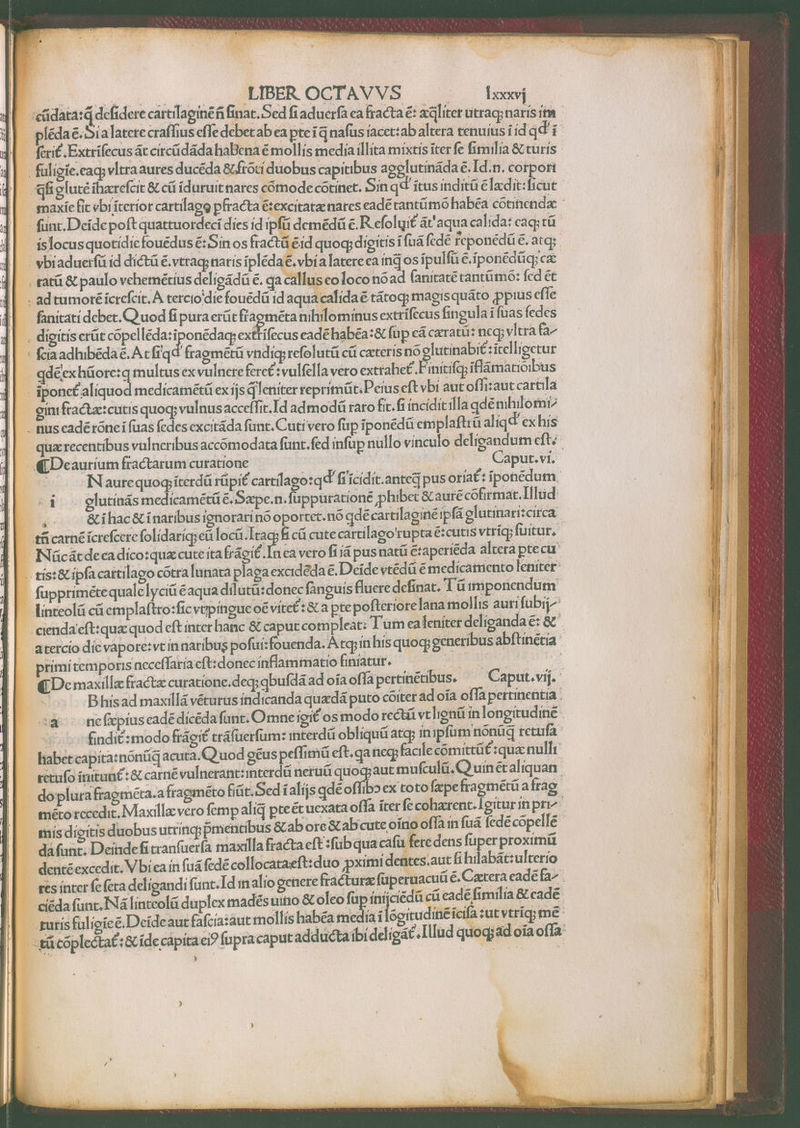 LIBER OCTAVVS lxxxvj
cūdata:q̄ desidere cartilaginē ñ sinat. Sed si aduersa ea fracta ē: æq̄liter utraq; naris im
plēda ē. Si a latere crassius esse debet ab ea pte ī q̄ nasus iacet: ab altera tenuius īid qd' ī
ferit. Extrīsecus āt circūdāda habena ē mollis media illita mixtis īter se similia & turis
fuligīe. eaq; vltra aures ducēda & frōti duobus capitibus agglutināda ē. Id.n. corpori
q̄si glutē ihærescit & cū īduruit nares cōmode cōtinet. Sin qd' ītus inditū ē lædit: sicut
maxīe fit vbi īterior cartilago pfracta ē: excitatæ nares eadē tantūmō habēa cōtinendæ
sunt. Deīde post quattuordecī dies id ipsū demēdū ē. Resoluit āt' aqua calida: eaq; tū
is locus quotidie fouēdus ē: Sin os fractū ē id quoq; digitis ī suā sedē reponēdū ē. atq;
vbi aduersū id dictū ē. vtraq; naris īplēda ē. vbi a latere ea īnq̄ os īpulsū ē. īponēdūq; cæ
ratū & paulo vehemētius deligādū ē. qa callus eo loco nō ad sanitatē tantūmō: sed ēt
ad tumorē īcrescit. A tercio die fouēdū id aqua calida ē tātoq; magis quāto ppius esse
sanitati debet. Quod si pura erūt fragmēta nihilominus extrīsecus singula ī suas sedes
digitis erūt cōpellēda: īponēdaq; extrīsecus eadē habēa: & sup eā cæratū: neq; vltra fa-
scia adhibēda ē. At si qd' fragmētū vndiq; resolutū cū cæteris nō glutinabit: ītelligetur
qdē ex hūore: q multus ex vulnere feret: vulsella vero extrahet. Finitisq; iflāmatiōibus
īponet aliquod medicamētū ex ijs q̄ leniter reprimūt. Peius est vbi aut ossi: aut cartila
gini fractæ: cutis quoq; vulnus accessit. Id admodū raro fit. si incidit illa qdē nihilomi-
nus eadē rōne ī suas sedes excitāda sunt. Cuti vero sup īponēdū emplastrū aliqd' ex his
quæ recentibus vulneribus accōmodata sunt. sed insup nullo vinculo deligandum est.
¶De aurium fractarum curatione Caput.vi.
i N aure quoq; īterdū rūpit cartilago: qd' si īcidit. anteq̄ pus oriat: īponēdum
glutinās medicamētū ē. Sæpe.n. suppurationē phibet & aurē cōfirmat. Illud
& ī hac & ī naribus ignorari nō oportet. nō qdē cartilaginē ipsā glutinari: circa
tñ carnē īcrescere solidariq; eū locū. Itaq; si cū cute cartilago rupta ē: cutis vtriq; suitur.
Nūc āt de ea dico: quæ cute ita frāgit. In ea vero si iā pus natū ē: aperiēda altera pte cu
tis: & ipsa cartilago cōtra lunata plaga excidēda ē. Deīde vtēdū ē medicamento leniter
supprimēte quale lyciū ē aqua dilutū: donec sanguis fluere desinat. Tū imponendum
linteolū cū emplastro: sic vt pingue oē vitet: & a pte posteriore lana mollis auri subij-
cienda est: quæ quod est inter hanc & caput compleat: Tum ea leniter deliganda ē: &
a tercio die vapore: vt in naribus posui: fouenda. Atq; in his quoq; generibus abstinētia
primi temporis necessaria est: donec inflammatio finiatur.
¶De maxillæ fractæ curatione. deq; qbusdā ad oīa ossa pertinētibus. Caput.vij.
a B his ad maxillā vēturus indicanda quædā puto cōiter ad oīa ossa pertinentia
ne sæpius eadē dicēda sunt. Omne igit os modo rectū vt lignū in longitudinē
findit: modo frāgit trāsuersum: interdū obliquū atq; in ipsum nōnūq̄ retusa
habet capita: nōnūq̄ acuta. Quod gēus pessimū est. qa neq; facile cōmittūt: quæ nulli
retuso initunt: & carnē vulnerant: interdū neruū quoq; aut musculū. Quin et aliquan
do plura fragmēta. a fragmēto fiūt. Sed ī alijs qdē ossibɔ ex toto sæpe fragmētū a frag
mēto recedit. Maxillæ vero semp aliq̄ pte ēt uexata ossa īter se cohærent. Igitur in pri-
mis digitis duobus utrinq; pmentibus & ab ore & ab cute oīno ossa in suā sedē cōpellē
da sunt. Deinde si transuersa maxilla fracta est: sub qua casu fere dens super proximū
dentē excedit. Vbi ea in suā sedē collocata est: duo pximi dentes. aut si hi labāt: ulterio
res inter se seta deligandi sunt. Id in alio genere fracturæ superuacuū ē. Cætera eadē fa-
ciēda sunt. Nā linteolū duplex madēs uino & oleo sup inijciēdū cū eadē similia & eadē
turis fuligīe ē. Deīde aut fascia: aut mollis habēa media ī lōgitudinē īcisa: ut vtriq; mē
tū cōplectat: & īde capita eiꝰ supra caput adducta ibi deligāt. Illud quoq; ad oīa ossa